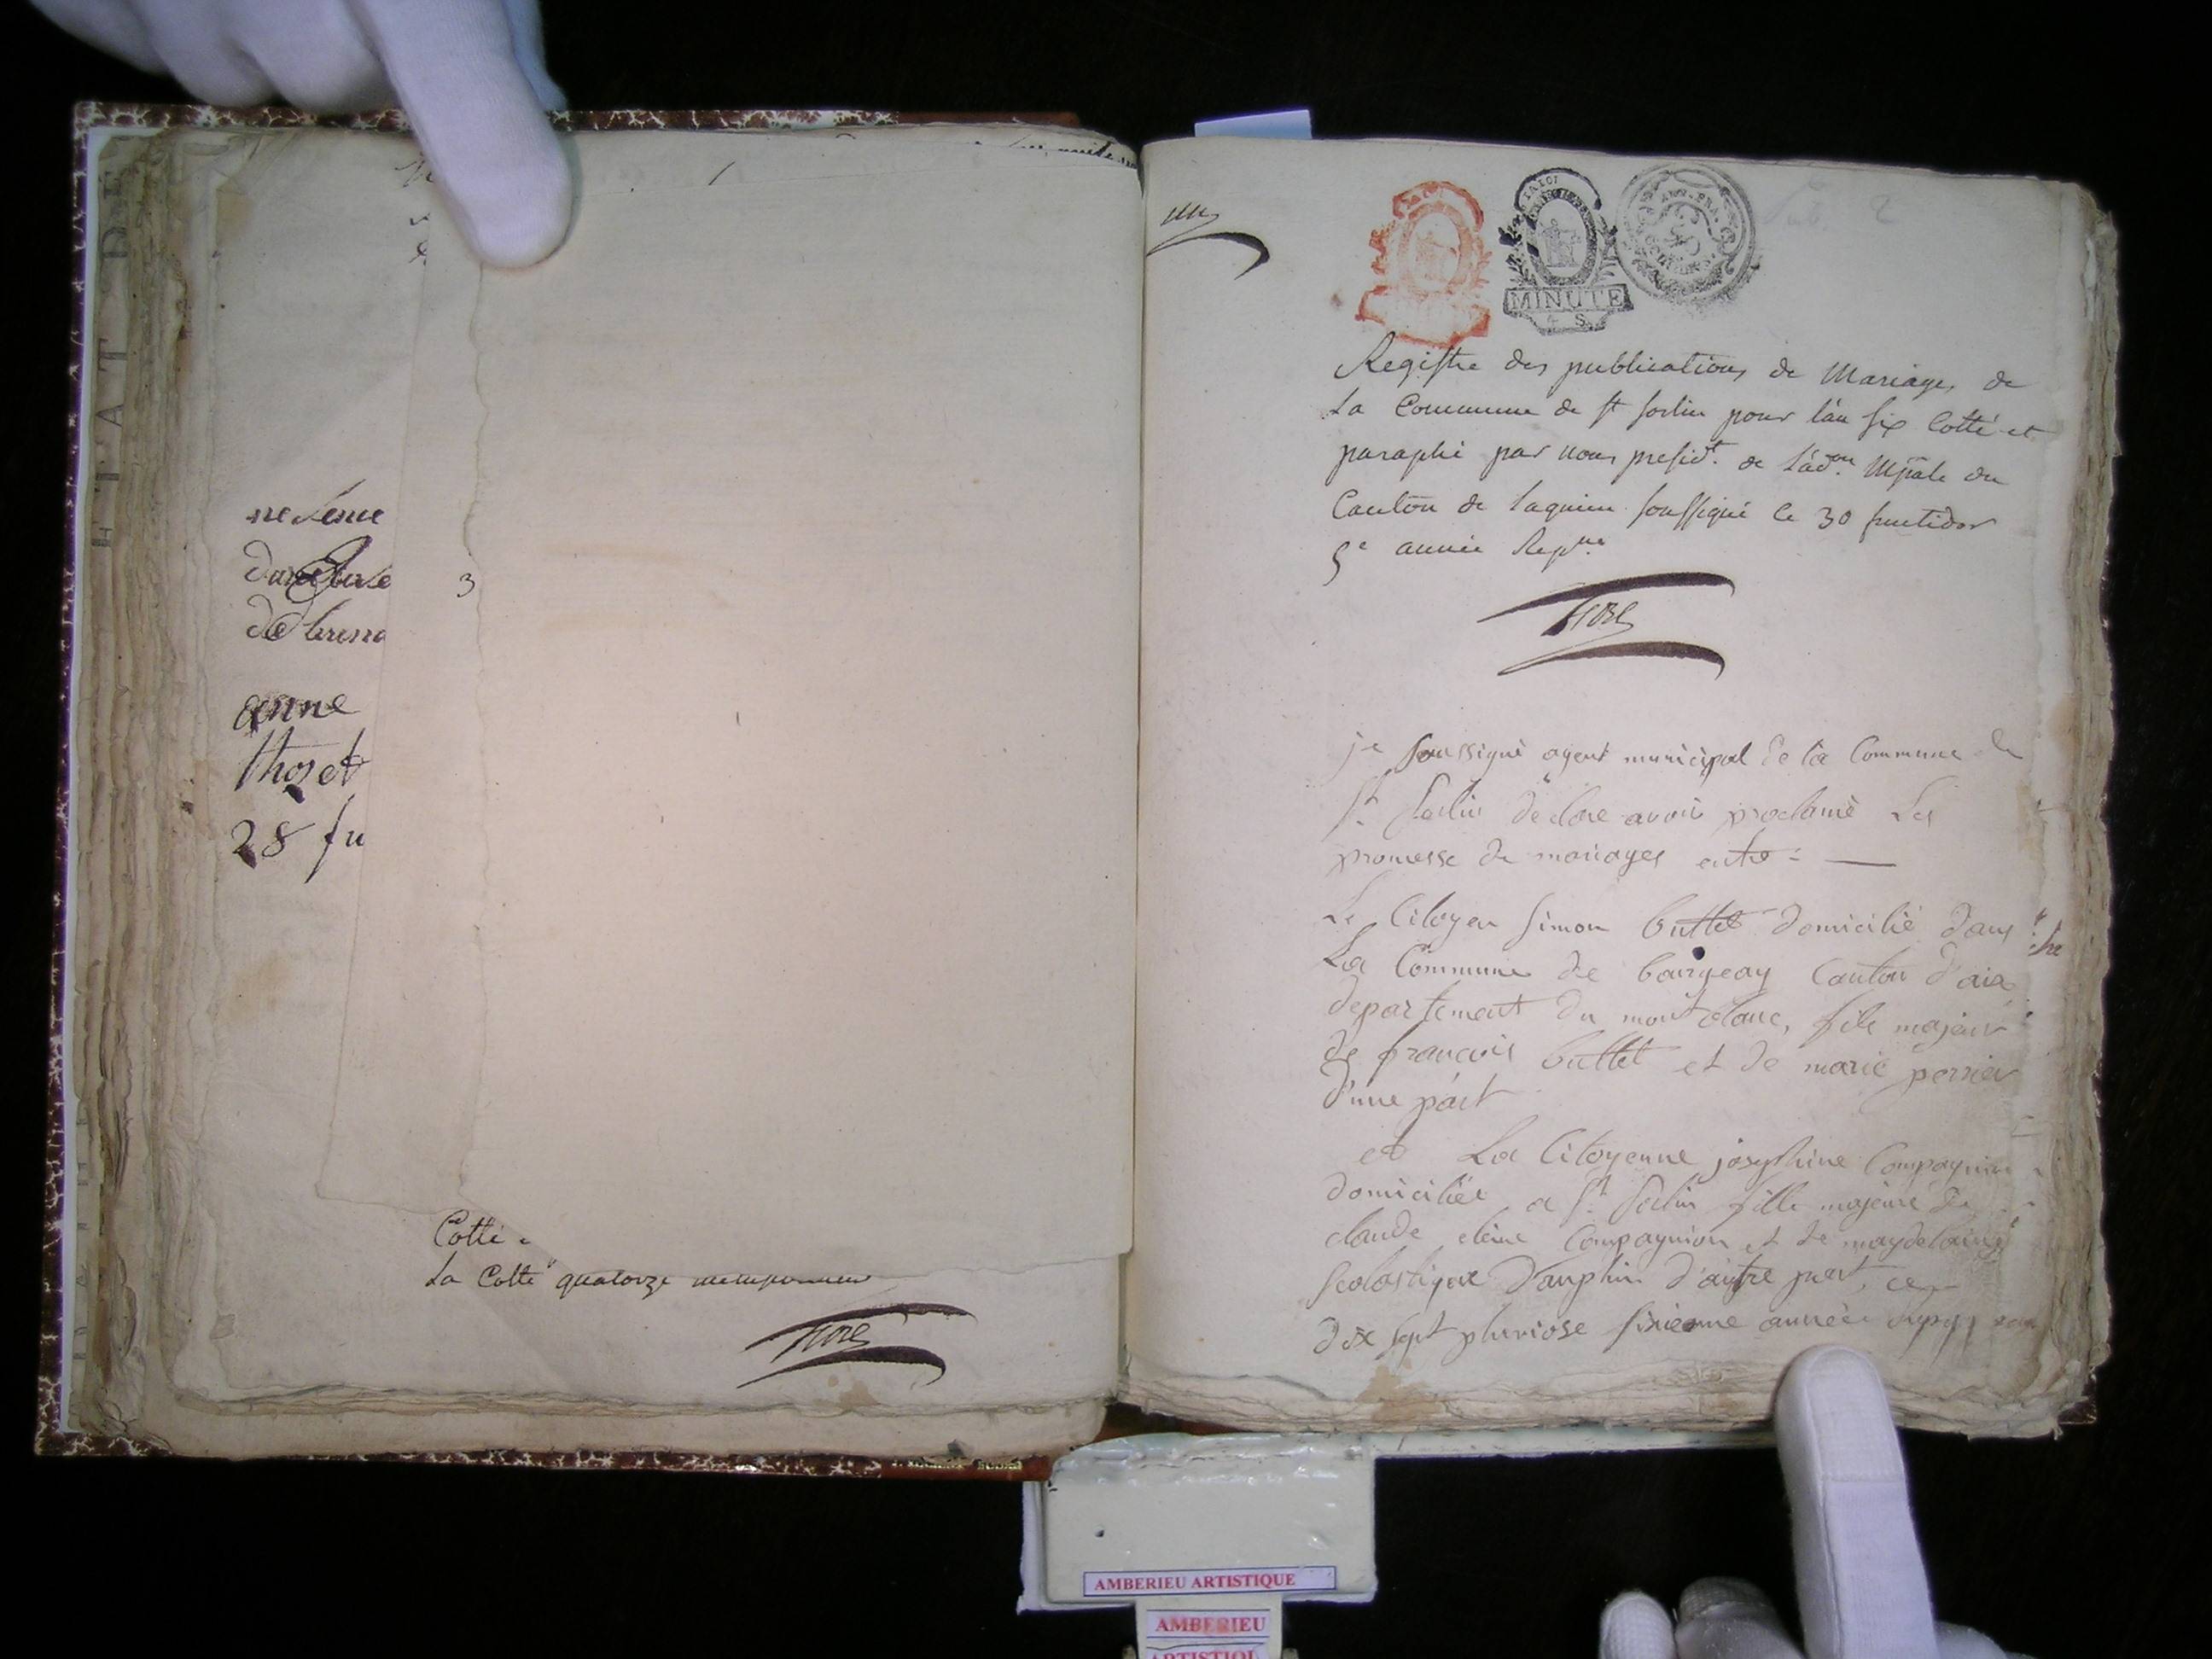 ne
anne
thoset
28 fu
3
Cotté
La Cotte quatorze
un
MINUTE
4 S.
Registre des publications de Mariages de
La Commune de St Sorlin pour l'an six Cotté et
paraphé par nous presidt. de L'adon. Mpale du
Canton de Lagnieu soussigné le 30 fructidor
5e année Repne
je soussigné agent municipal de la Commune de
St Sorlin déclare avoir proclamé Les
promesse de mariages entre : —
Le Citoyen Simon buttet domicilié dans
La Commune de Canton d'aix
departement du mont blanc, fils majeur
de francois buttet et de marie perrier
d'une part
et La Citoyenne josephine Compagnion
domiciliée a St Sorlin fille majeure de
claude Compagnion et de magdelaine
Scolastique Dauphin d'autre part, ce
dix sept pluviose sixieme année
AMBERIEU ARTISTIQUE
AMBERIEU
ARTISTIQUE